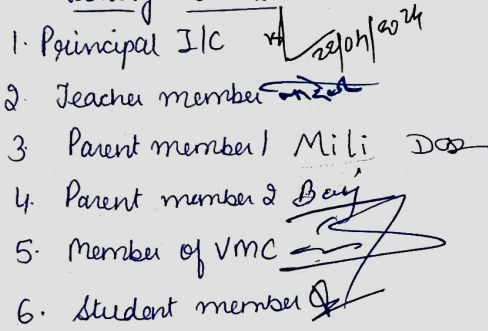 1. Principal I/C 22/04/2024
2. Teacher member
3. Parent member 1 Mili Das
4. Parent member 2
5. Member of VMC
6. Student member